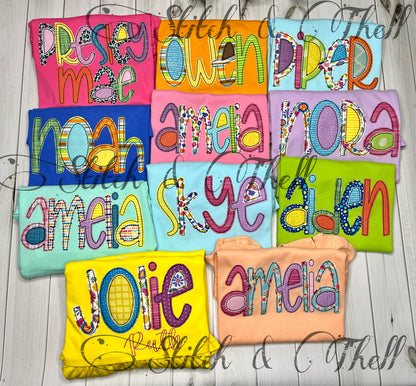 Stitch & Thell
PRESLEY
mae
owen
PIPER
noah
amelia
nora
Stitch & Thell
amelia
skye
aiden
jolie
amelia
Stitch & Thell